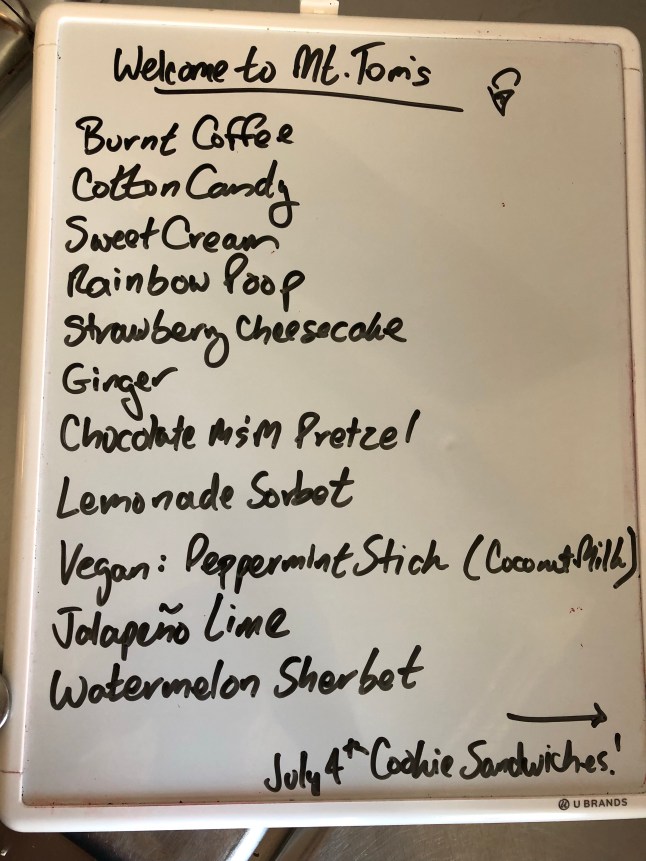 Welcome to Mt. Tom's
Burnt Coffee
Cotton Candy
Sweet Cream
Rainbow Poop
Strawberry Cheesecake
Ginger
Chocolate M&M Pretzel
Lemonade Sorbet
Vegan: Peppermint Stick (Coconut Milk)
Jalapeño Lime
Watermelon Sherbet
July 4th Cookie Sandwiches!
U BRANDS